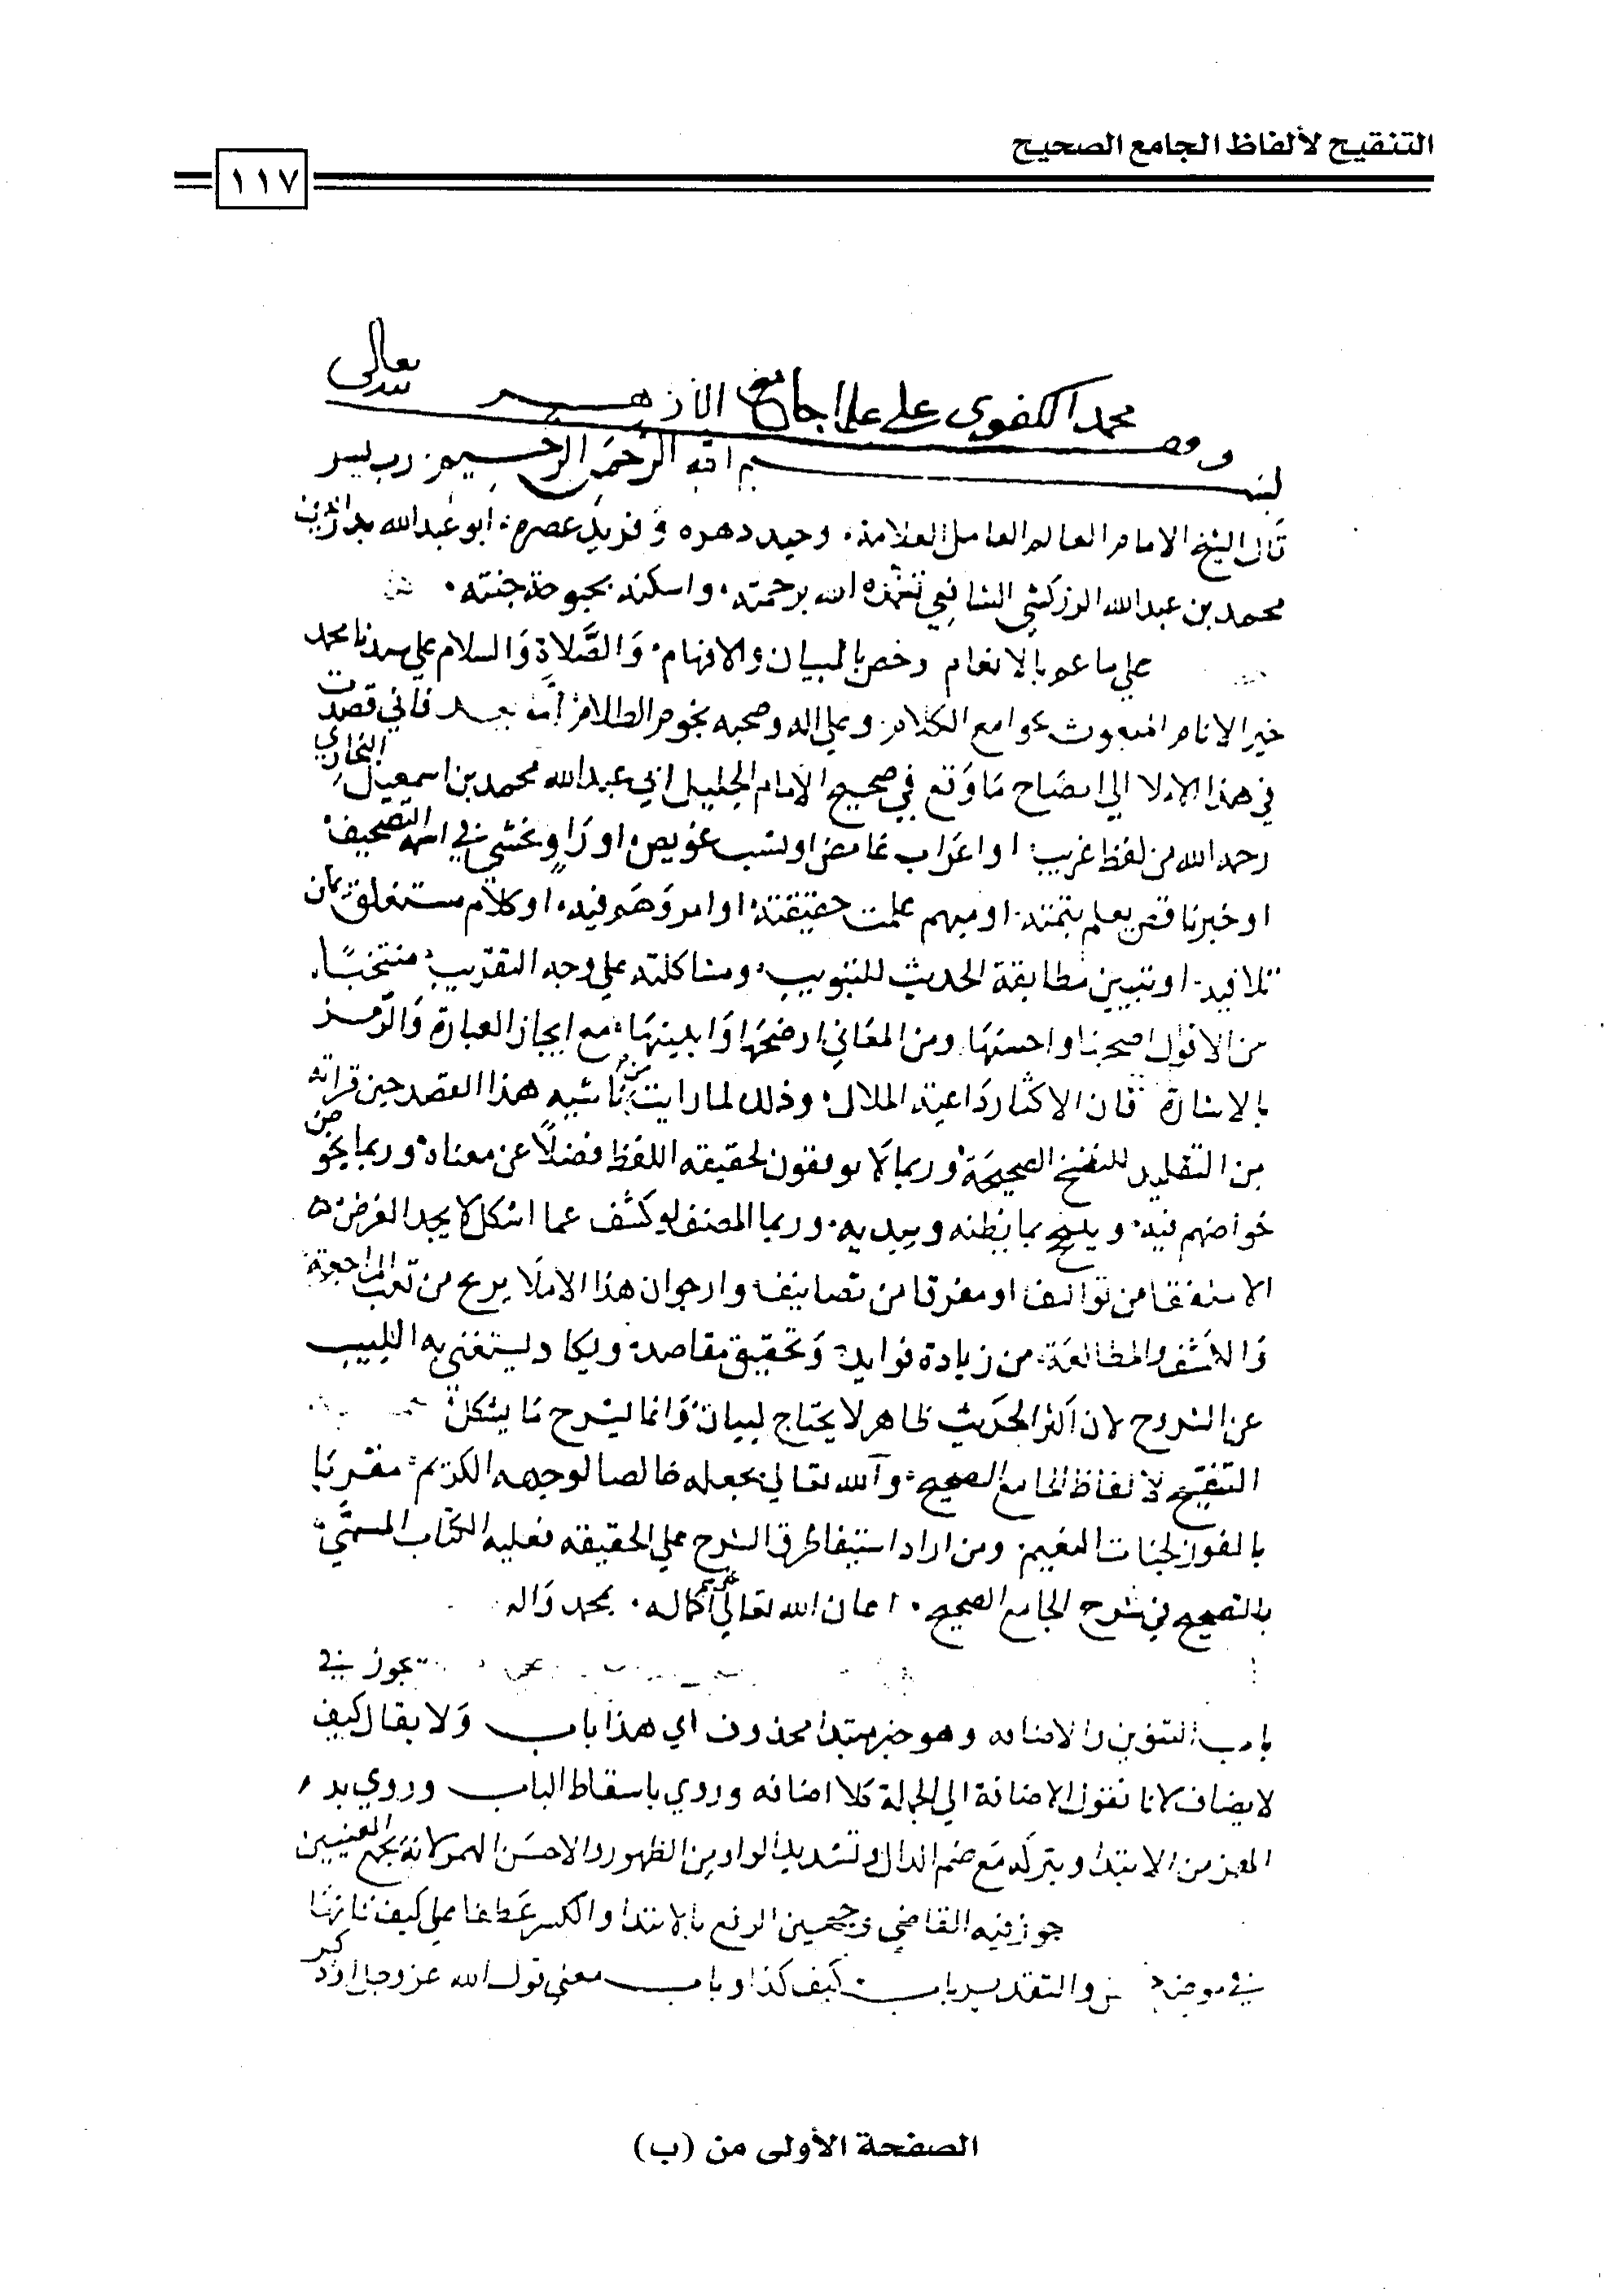 التنقيح لألفاظ الجامع الصحيح
١١٧
تعالى
وقف محمد الكفوي على علما جامع الازهر
بسم الله الرحمن الرحيم رب يسر
قال الشيخ الامام العالم العامل العلامة وحيد دهره وفريد عصره ابو عبدالله بدر الدين
محمد بن عبدالله الزركشي الشافعي تغمده الله برحمته واسكنه بحبوحة جنته
على ما عم بالانعام وخص بالبيان والافهام والصلاة والسلام علي سيدنا محمد
خير الانام المبعوث بجوامع الكلام وعلي اله وصحبه نجوم الظلام اما بعد فاني قصدت
في هذا الاملا الي ايضاح ما وقع في صحيح الامام الجليل ابي عبدالله محمد بن اسمعيل البخاري
رحمه الله من لفظ غريب او اعراب غامض او نسب عويص او راو يخشي في اسمه التصحيف
او خبر ناقص يعلم تتمته او مبهم علمت حقيقته او امر وهم فيه او كلام مستغلق يمكن
تلافيه او تبيين مطابقة الحديث للتبويب ومشاكلته علي وجه التقريب منتخبا
من الاقوال اصحها واحسنها ومن المعاني اوضحها وابينها مع ايجاز العبارة والرمز
بالاشارة فان الاكثار داعية الملال وذلك لما رايت من ناشية هذا العصر حين قراته
من التقليد للنسخ الصحيحة وربما لا يوفقون لحقيقة اللفظ فضلا عن معناه وربما يخو
ض خواضهم فيه ويتبجح بما يظنه ويبديه وربما المصنف لو كشف عما اشكل لا يجد الغرض
الا متفقا من تواليف او مفرقا من تصانيف وارجوا ان هذا الاملا يريح من تعب المراجعة
والكشف والمطالعة من زيادة فوايد وتحقيق مقاصد ويكاد يستغني به اللبيب
عن الشروح لان اكثر الحديث ظاهر لا يحتاج لبيان وانما يشرح ما يشكل
التنقيح لالفاظ الجامع الصحيح والله تعالي يجعله خالصا لوجهه الكريم مقربا
بالفوز لجنات النعيم ومن اراد استيفا طرق الشرح علي الحقيقه فعليه الكتاب المسمي
بالتصحيح في شرح الجامع الصحيح اعان الله تعالي علي اكماله بمحمد واله
يجوز في
باب التنوين والاضافه وهو خبر مبتدا محذوف اي هذا باب ولا يقال كيف
لا يضاف لانا نقول الاضافة الي الجملة كلا اضافه وروي باسقاط الباب وروي بدء
الهمز من الابتدا وبتركه مع ضم الدال وتشديد الواو من الظهور والاحسن الهمز لانه يجمع المعنيين
جوز فيه القاضي وجهين الرفع بالابتدا والكسر عطفا علي كيف فانها
في موضع والتقدير باب كيف كذا وباب معني قول الله عز وجل او ذكر
الصفحة الأولى من (ب)